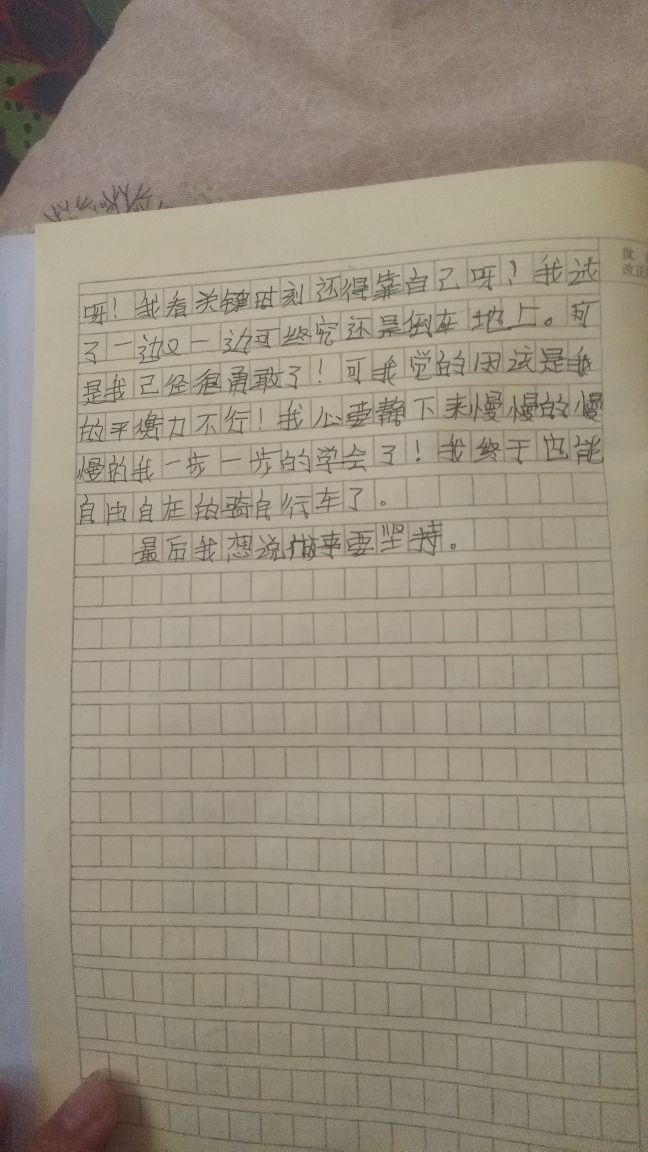 批
改正
呀！我看关键时刻还得靠自己呀！我试
了一边又一边可终究还是倒在地上。可
是我己经很勇敢了！可我觉的因该是我
的平衡力不行！我心要静下来慢慢的慢
慢的我一步一步的学会了！我终于也能
自由自在的骑自行车了。
最后我想说做事要坚持。